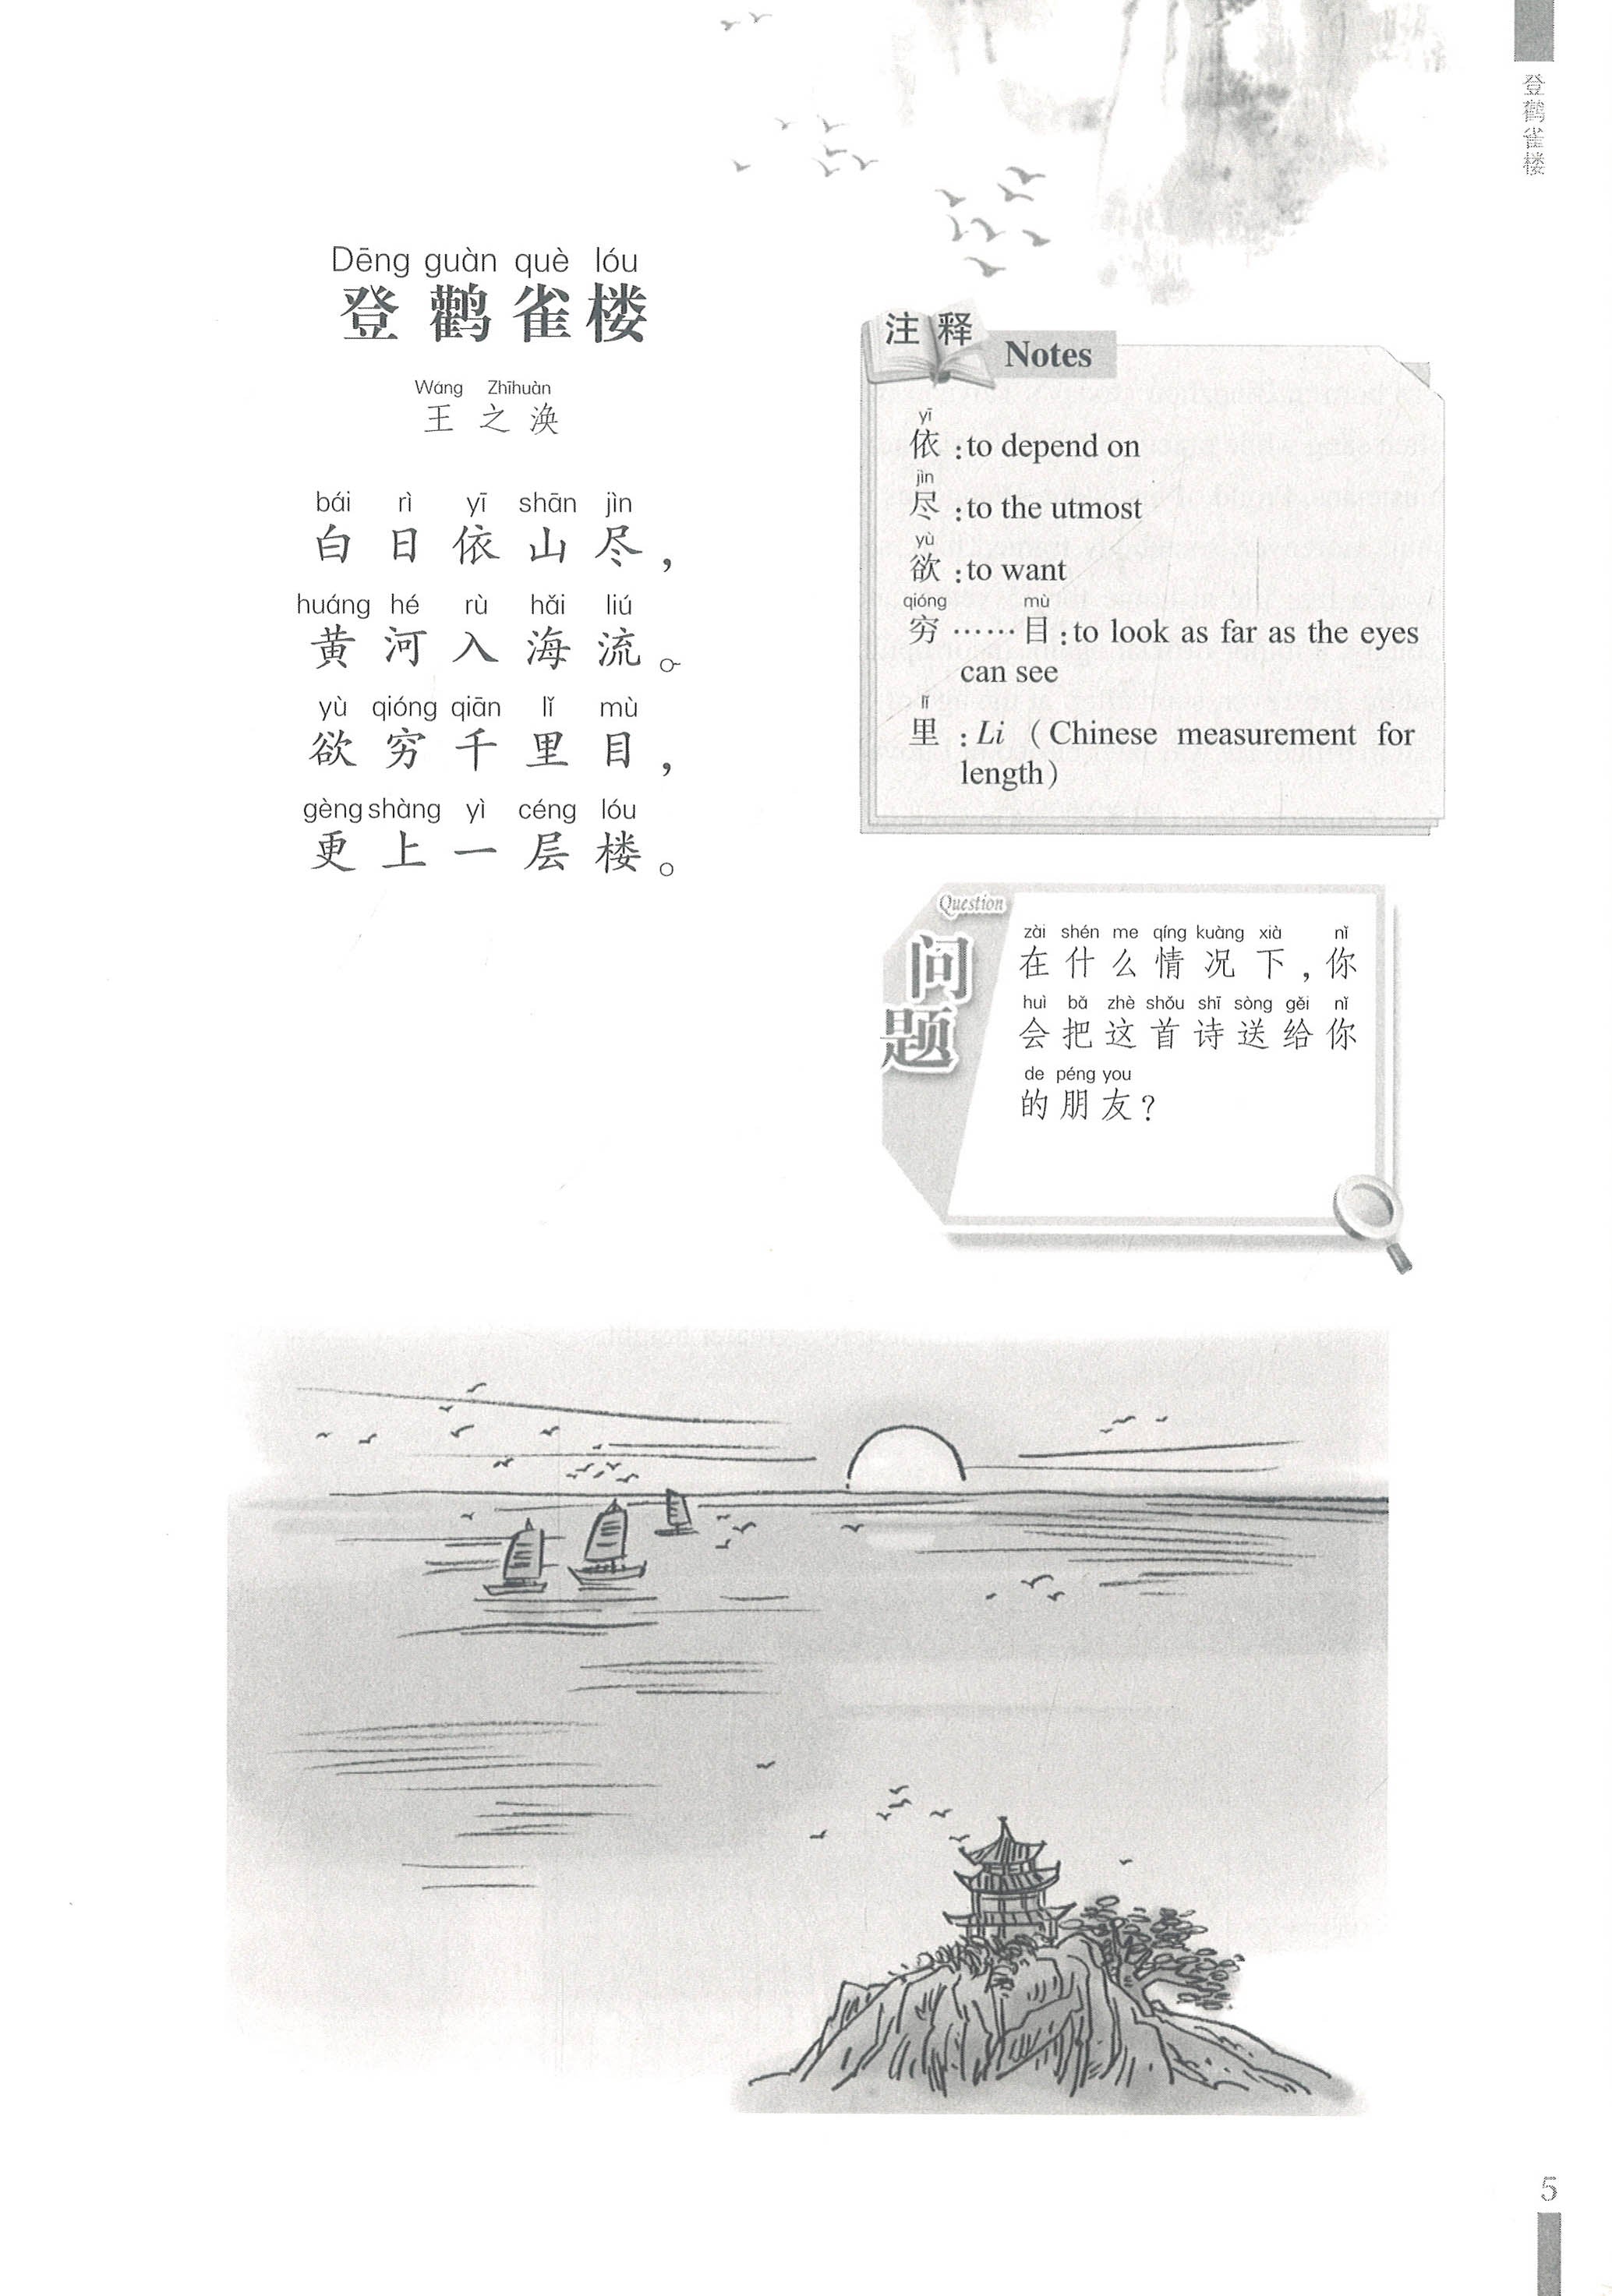 登鹳雀楼
Dēng guàn què lóu
登鹳雀楼
Wáng Zhīhuàn
王之涣
bái rì yī shān jìn
白日依山尽，
huáng hé rù hǎi liú
黄河入海流。
yù qióng qiān lǐ mù
欲穷千里目，
gèng shàng yì céng lóu
更上一层楼。
注释 Notes
yī
依：to depend on
jìn
尽：to the utmost
yù
欲：to want
qióng mù
穷……目：to look as far as the eyes
can see
lǐ
里：Li（Chinese measurement for
length）
Question
问题
zài shén me qíng kuàng xià nǐ
在什么情况下，你
huì bǎ zhè shǒu shī sòng gěi nǐ
会把这首诗送给你
de péng you
的朋友？
5